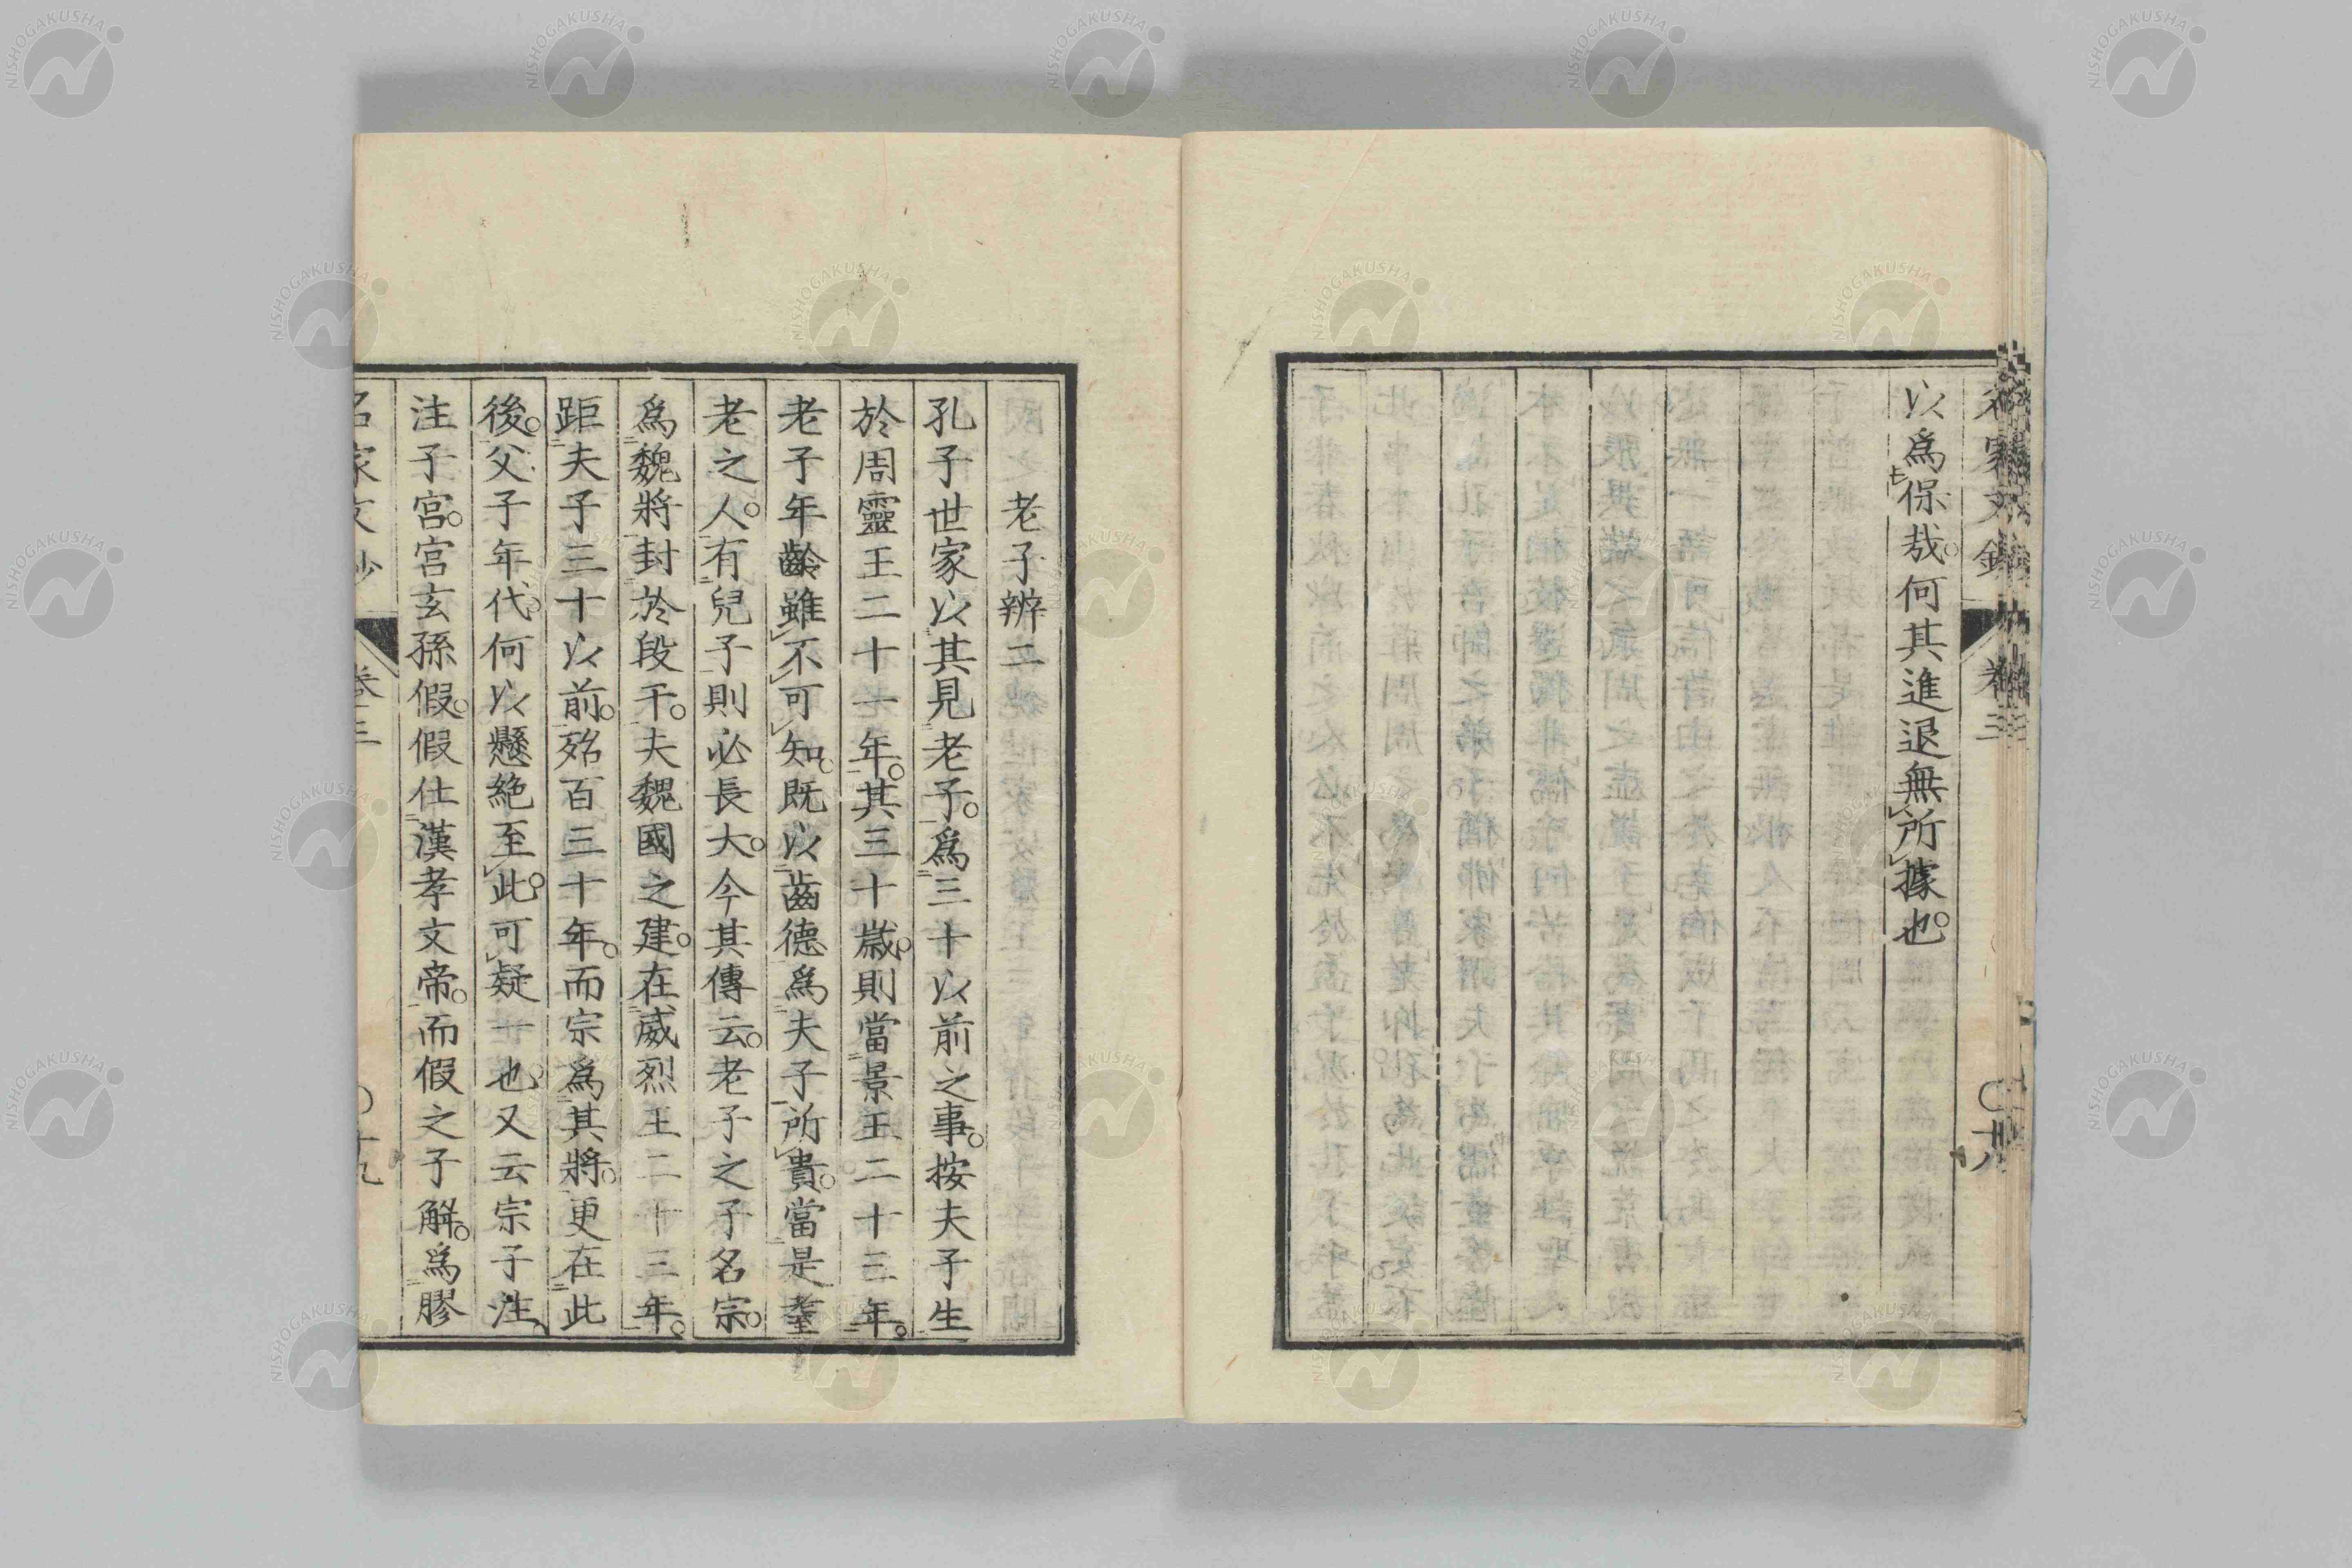 以爲保哉。何其進退無所據也。
老子辨二
孔子世家以其見老子。爲三十以前之事。按夫子生
於周靈王二十一年。其三十歲。則當景王二十三年。
老子年齡雖不可知。既以齒德爲夫子所貴。當是耄
老之人。有兒子則必長大。今其傳云。老子之子名宗。
爲魏將封於段干。夫魏國之建。在威烈王二十三年。
距夫子三十以前。殆百三十年。而宗爲其將。更在此
後。父子年代。何以懸絶至此。可疑一也。又云宗子注、
注子宮。宮玄孫假。假仕漢孝文帝。而假之子解。爲膠
名家文抄 卷三 〇十九
NISHOGAKUSHA